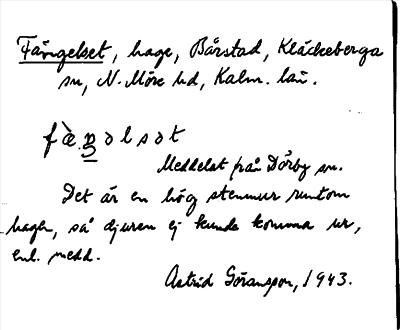 Fängelset, hage, Bårstad, Kläckeberga
sn, N. Möre hd, Kalm. län.
Meddelat från Dörby sn.
Det är en hög stenmur runtom
hagen, så djuren ej kunde komma ur,
enl. medd.
Astrid Göransson, 1943.